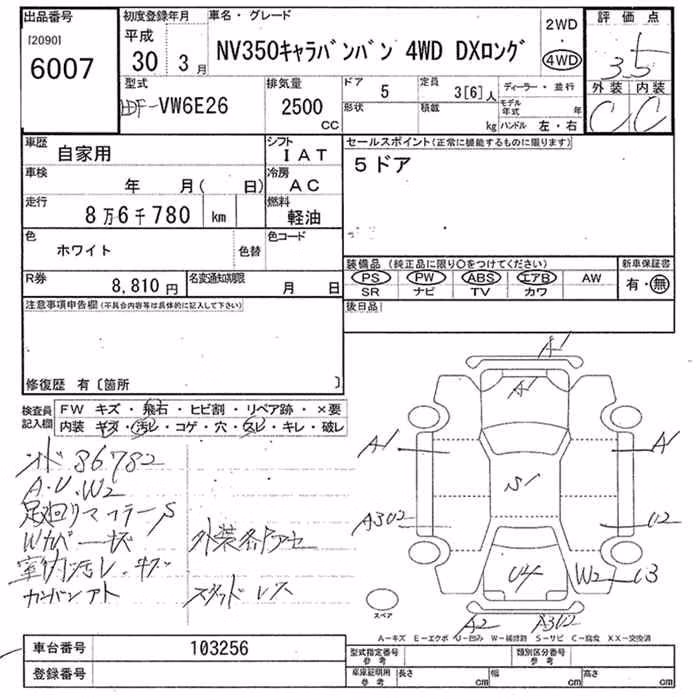 出品番号
[2090]
6007
初度登録年月
平成
30 3月
車名・グレード
NV350キャラバンバン 4WD DXロング
2WD
4WD
評価点
3.5
外装 内装
C C
型式
LDF-VW6E26
排気量
2500
CC
ドア
5
形状
定員
3[6]人
積載
kg
ディーラー・並行
モデル年式 年
ハンドル 左・右
車歴
自家用
シフト
IAT
車検
年 月( 日)
冷房
AC
走行
8万6千780 km
燃料
軽油
色
ホワイト
色替
色コード
R券
8,810円
名変通知期限
月 日
セールスポイント(正常に機能するものに限ります)
5ドア
装備品 (純正品に限り○をつけてください)
PS PW ABS エアB AW
SR ナビ TV カワ
新車保証書
有・無
後日品
注意事項申告欄(不具合内容等は具体的に記入して下さい)
修復歴 有〔箇所 〕
検査員記入欄
FW キズ・飛石・ヒビ割・リペア跡・×要
内装 キズ・汚レ・コゲ・穴・スレ・キレ・破レ
86782
A.U.W2
足廻リマフラーS
Wカバーキズ
外装各アセ
室内汚レ.キズ
カンバンアト
スタッドレス
A1
A1
A1
A1
S1
A3U2
U2
U4
W2
U3
A2
A3U2
スペア
A-キズ E-エクボ U-凹み W-補修跡 S-サビ C-腐食 XX-交換済
車台番号
103256
登録番号
型式指定番号
参考
類別区分番号
参考
車庫証明用
参考
長さ cm
幅 cm
高さ cm